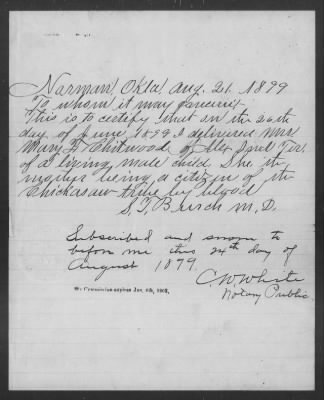 Norman Okla Aug. 21. 1899
To whom it may Concern
This is to certify that on the 26th
day of June 1899 I delivered Mrs
Mary F. Chitwood of Ind Ter.
of a living male child She the
mother being a citizen of the
Chickasaw tribe by blood
M. D.
Subscribed and sworn to
before me this 24th day of
August 1899.
C. W. White
Notary Public.
My Commission expires Jan. 1902.